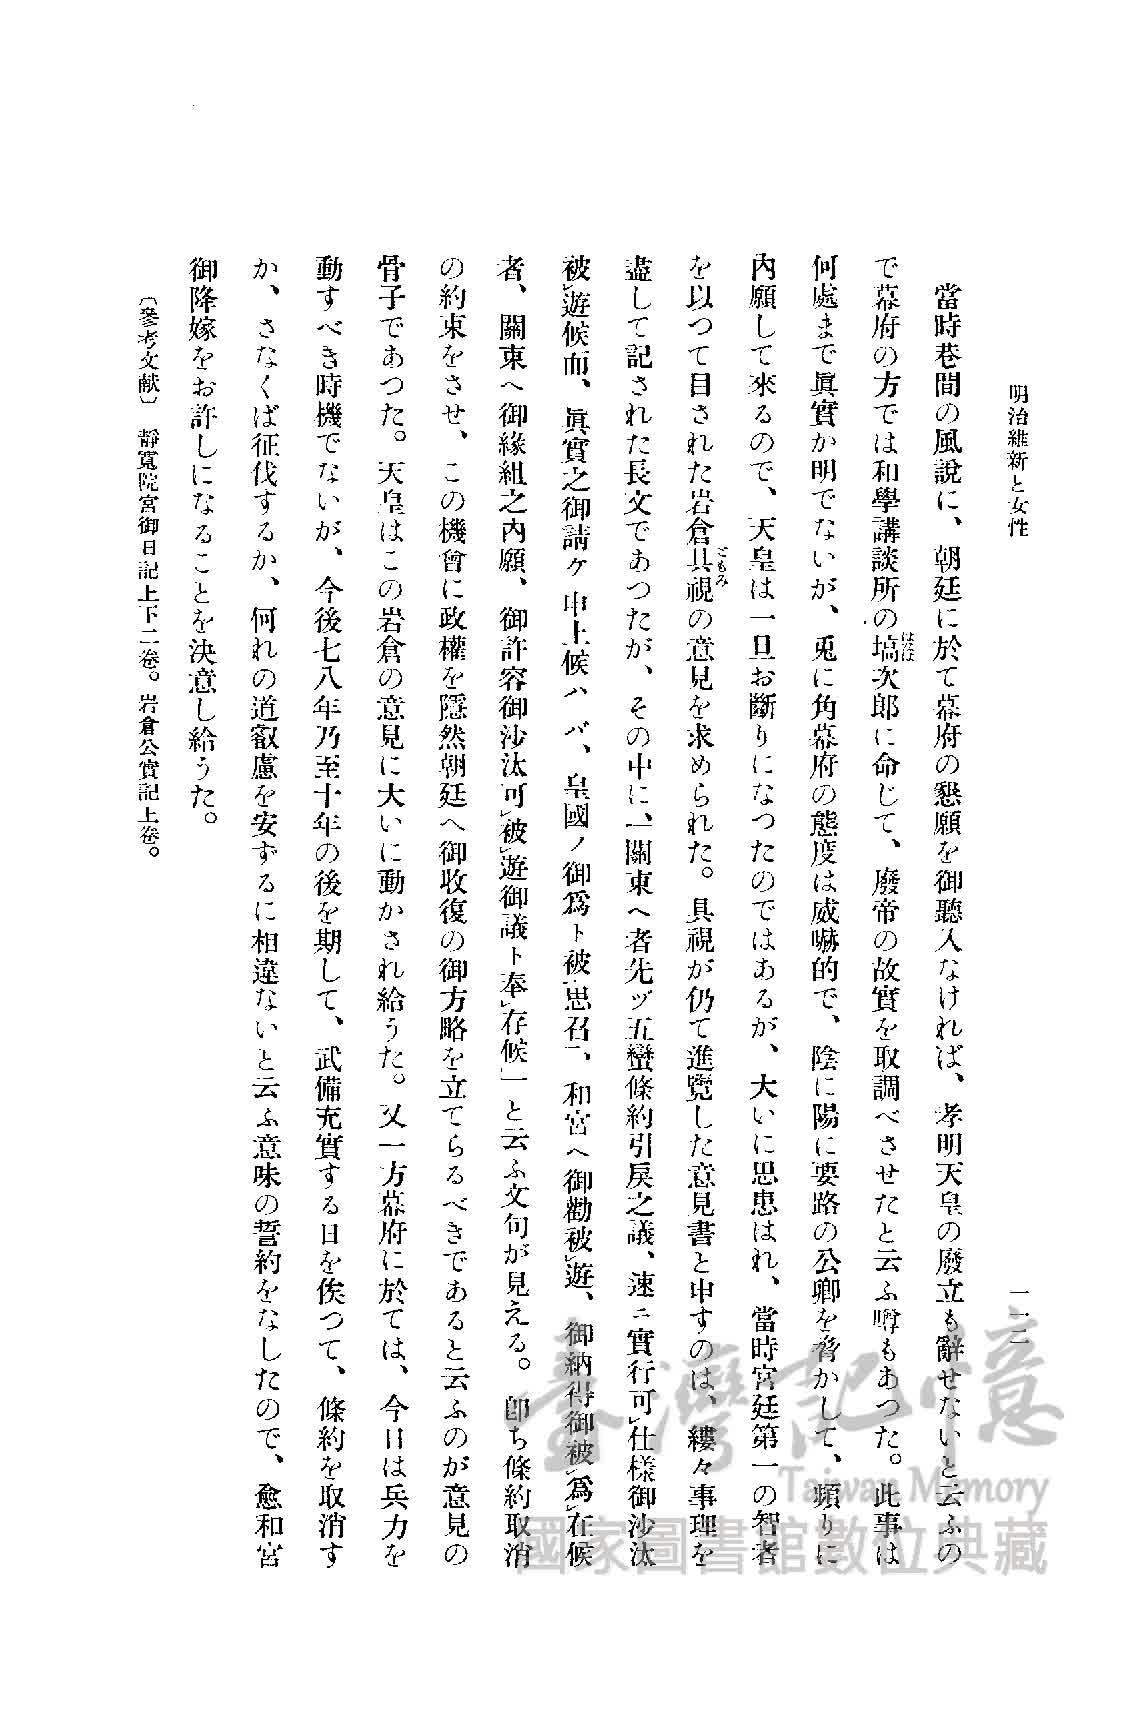 明治維新と女性
一一二
當時巷間の風說に、朝廷に於て幕府の懇願を御聽入なければ、孝明天皇の廢立も辭せないと云ふの
で幕府の方では和學講談所の塙次郎に命じて、廢帝の故實を取調べさせたと云ふ噂もあつた。此事は
何處まで眞實か明でないが、兎に角幕府の態度は威嚇的で、陰に陽に要路の公卿を脅かして、頻りに
內願して來るので、天皇は一旦お斷りになつたのではあるが、大いに思患はれ、當時宮廷第一の智者
を以つて目された岩倉具視の意見を求められた。具視が仍て進覽した意見書と申すのは、縷々事理を
盡して記された長文であつたが、その中に、「關東へ者先ヅ五蠻條約引戾之議、速ニ實行可レ仕樣御沙汰
被レ遊候而、眞實之御請ケ申上候ハヾ、皇國ノ御爲ト被二思召一、和宮へ御勸被レ遊、御納得御被レ爲レ在候
者、關東へ御緣組之內願、御許容御沙汰可レ被レ遊御議ト奉レ存候」と云ふ文句が見える。卽ち條約取消
の約束をさせ、この機會に政權を隱然朝廷へ御收復の御方略を立てらるべきであると云ふのが意見の
骨子であつた。天皇はこの岩倉の意見に大いに動かされ給うた。又一方幕府に於ては、今日は兵力を
動すべき時機でないが、今後七八年乃至十年の後を期して、武備充實する日を俟つて、條約を取消す
か、さなくば征伐するか、何れの道叡慮を安ずるに相違ないと云ふ意味の誓約をなしたので、愈和宮
御降嫁をお許しになることを決意し給うた。
〔參考文獻〕 靜寬院宮御日記上下二卷。岩倉公實記上卷。
はなは
ともみ
臺灣記憶
Taiwan Memory
國家圖書館數位典藏